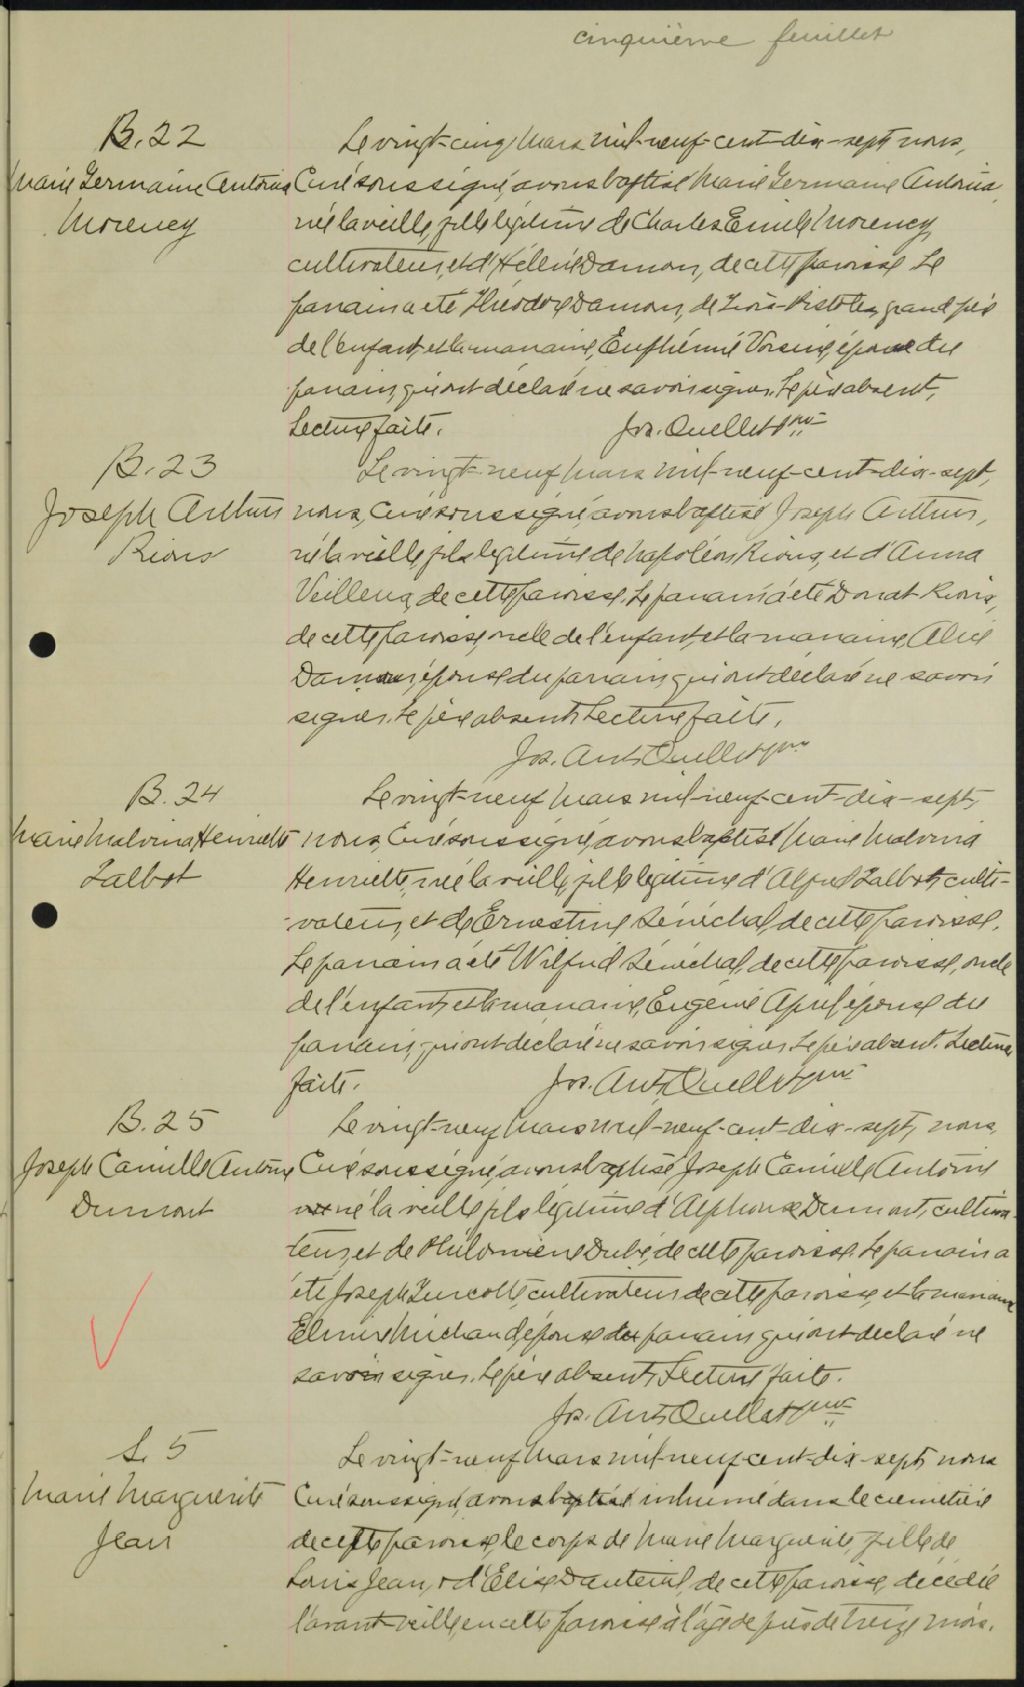 cinquième feuillet
B. 22
Marie Germaine Antonia
Morency
Le vingt-cinq Mars mil-neuf-cent-dix-sept nous,
Curé soussigné, avons baptisé Marie Germaine Antonia,
née la veille, fille légitime de Charles Emile Morency,
cultivateur, et d'Hélène Damour, de cette paroisse. Le
parrain a été Théodore Damour, de Trois-Pistoles, grand père
de l'enfant, et la marraine, Euphémie Voisine, épouse du
parrain, qui ont déclaré ne savoir signer. Le père absent,
Lecture faite.
Jos. Ouellet ptre
B. 23
Joseph Arthur
Rioux
Le vingt-neuf Mars mil-neuf-cent-dix-sept,
nous, Curé soussigné, avons baptisé Joseph Arthur,
né la veille, fils légitime de Napoléon Rioux, et d'Anna
Veilleux, de cette paroisse. Le parrain a été Donat Rioux,
de cette paroisse, oncle de l'enfant, et la marraine, Alice
Damour, épouse du parrain, qui ont déclaré ne savoir
signer. Le père absent. Lecture faite.
Jos. Ant. Ouellet ptre
B. 24
Marie Malvina Henriette
Talbot
Le vingt-neuf Mars mil-neuf-cent-dix-sept,
nous, Curé soussigné, avons baptisé Marie Malvina
Henriette, née la veille, fille légitime d'Alfred Talbot, culti-
vateur, et de Ernestine Sénéchal, de cette paroisse.
Le parrain a été Wilfrid Sénéchal, de cette paroisse, oncle
de l'enfant, et la marraine, Eugénie April, épouse du
parrain, qui ont déclaré ne savoir signer. Le père absent. Lecture
faite.
Jos. Ant. Ouellet ptre
B. 25
Joseph Camille Antoine
Dumont
Le vingt-neuf Mars mil-neuf-cent-dix-sept, nous,
Curé soussigné, avons baptisé, Joseph Camille Antoine
né la veille, fils légitime d'Alphonse Dumont, cultiva-
teur, et de Philomène Dubé, de cette paroisse. Le parrain a
été Joseph Turcotte, cultivateur de cette paroisse, et la marraine
Elmire Michaud, épouse du parrain, qui ont déclaré ne
savoir signer. Le père absent. Lecture faite.
Jos. Ant. Ouellet ptre
S. 5
Marie Marguerite
Jean
Le vingt-neuf Mars mil-neuf-cent-dix-sept, nous
Curé soussigné, avons baptisé inhumé dans le cimetière
de cette paroisse, le corps de Marie Marguerite, fille de
Louis Jean, & d'Elise Dauteuil, de cette paroisse, décédée
l'avant-veille, en cette paroisse à l'âge de près de treize mois.